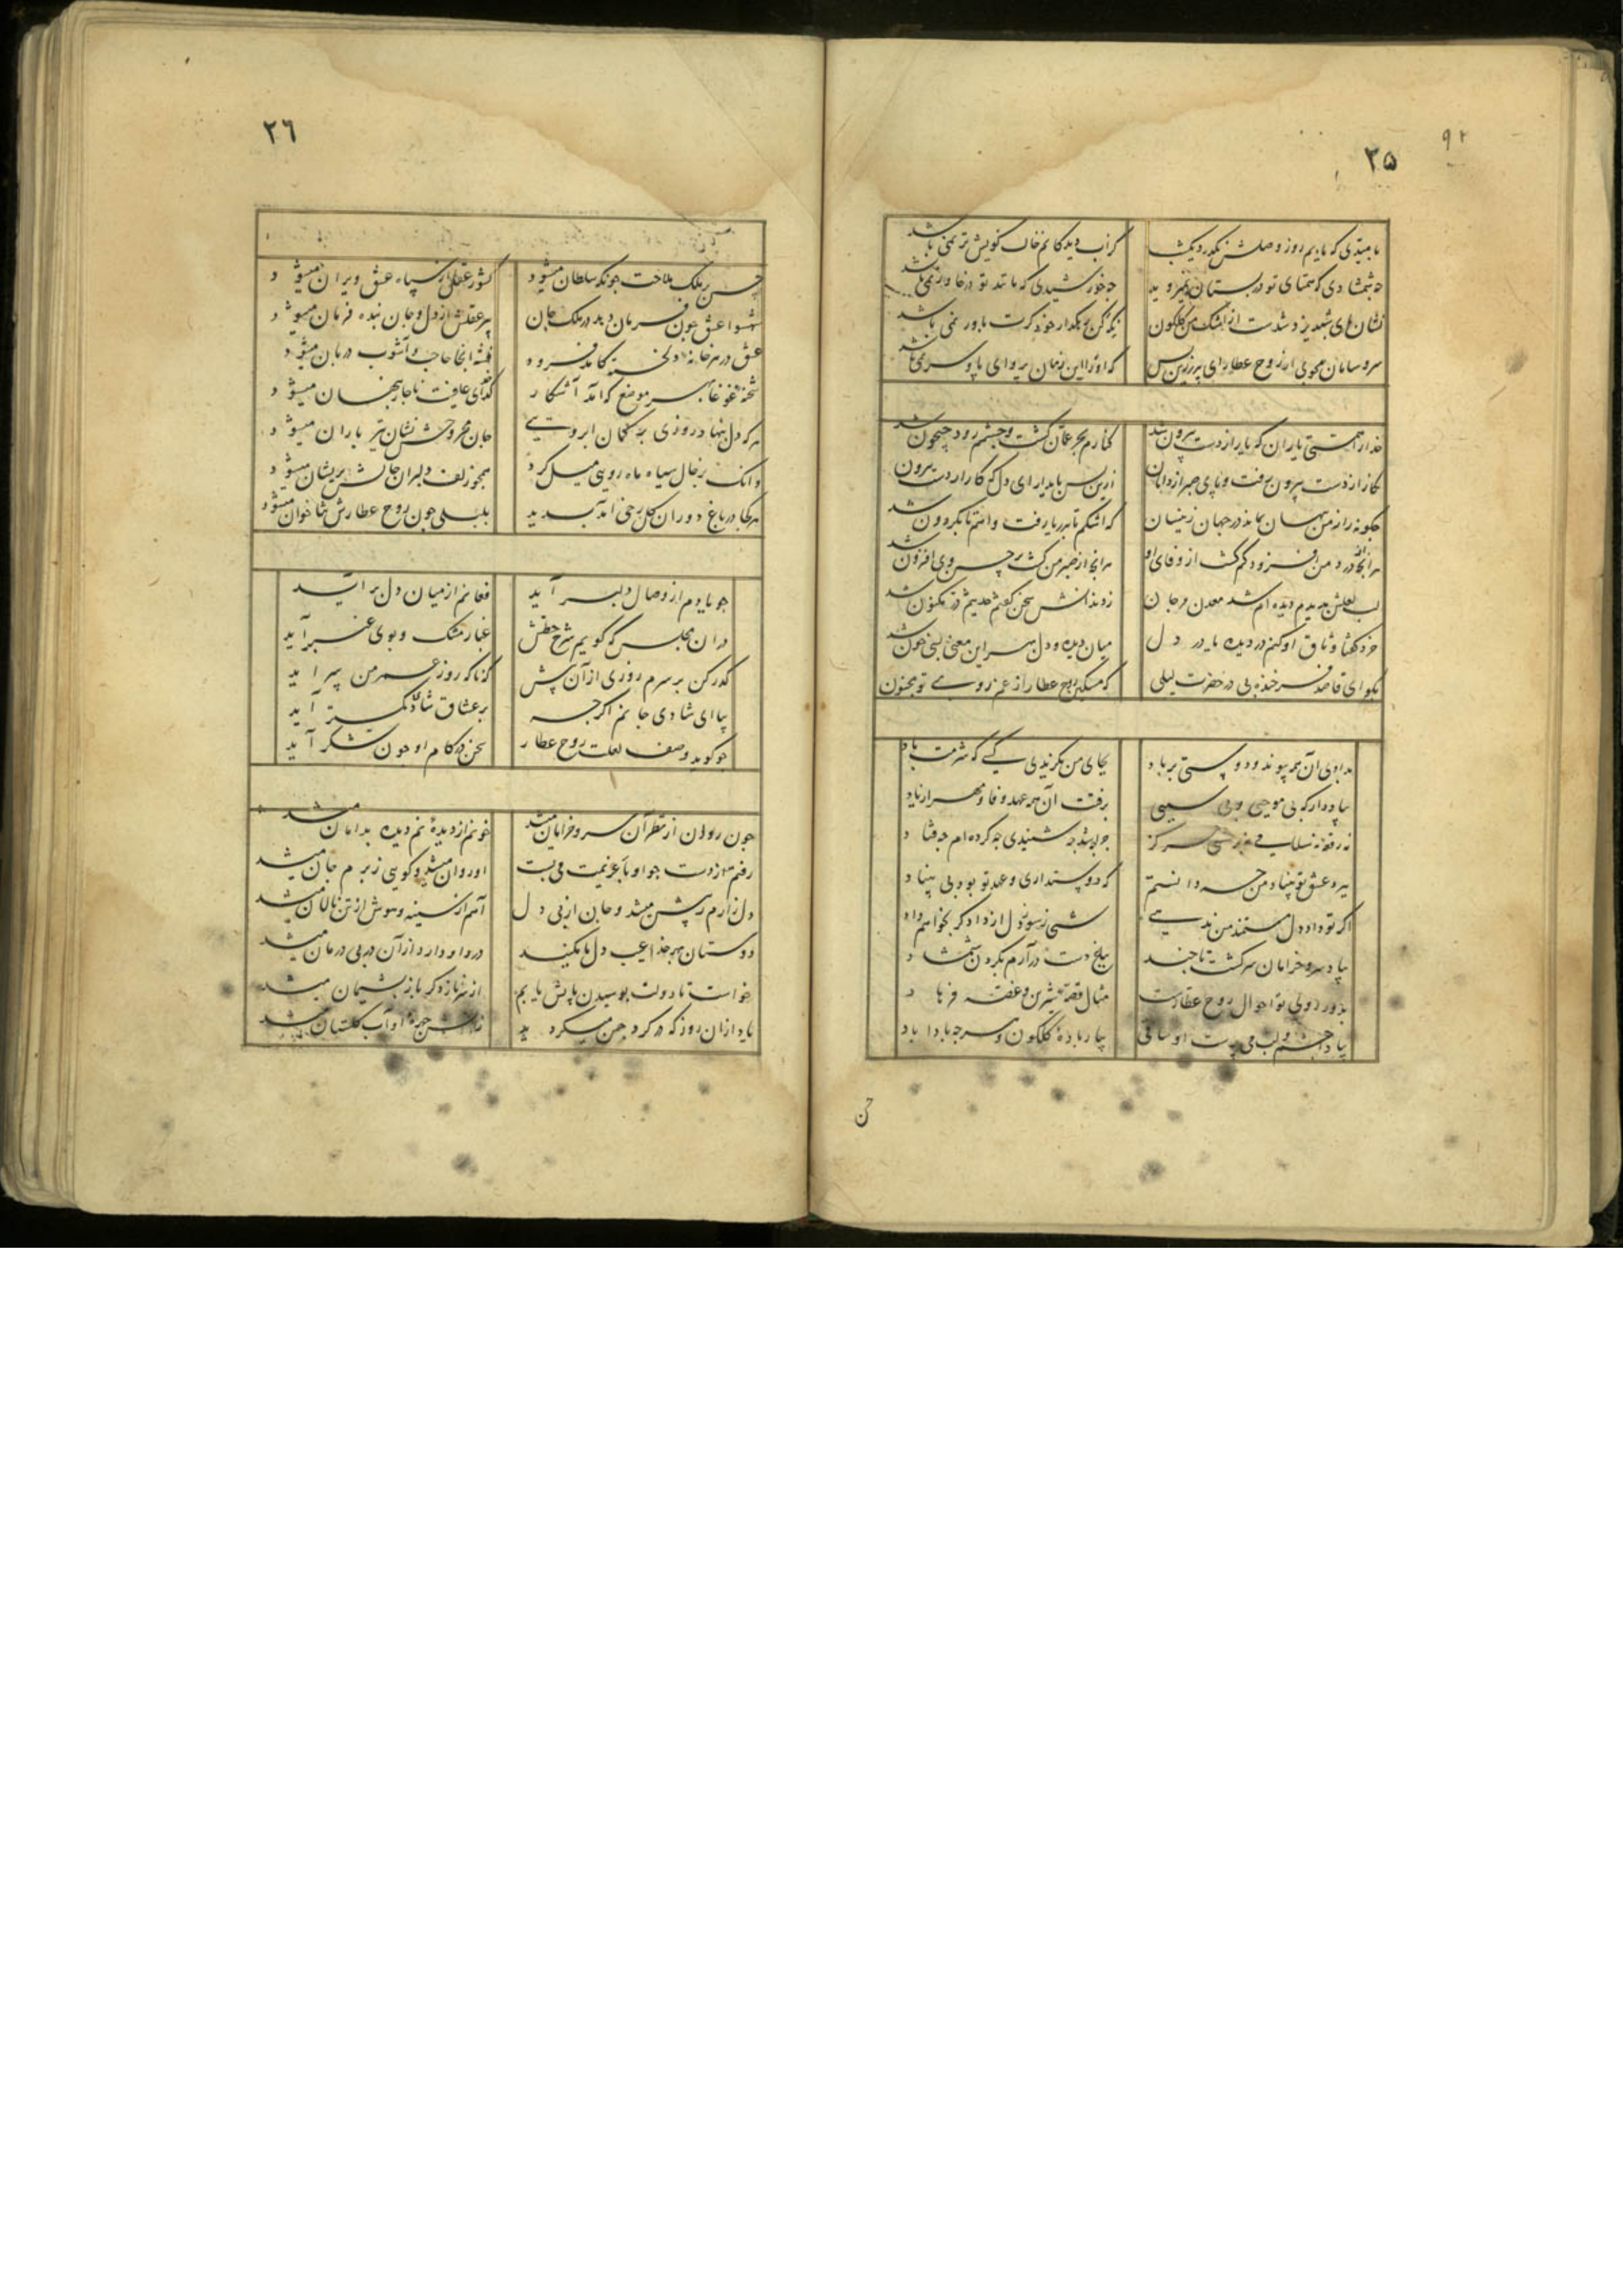 ۹۲
۲۵
با میدی که یابم روز وصلش نگذرد یکشب
کزاب دیدکانم خاک کویش تر نمی باشد
چه شمشادی که همتای تو در بستان نمیروید
چه خورشیدی که مانند تو در خاور نمی باشد
نشان های شبدیز شدست از اشک من گلگون
نگه کن رهگذار خود کرت باور نمی باشد
سر و سامان مجوی از روح عطار ای پری زین پس
که او را این زمان پروای پا و سر نمی باشد
خدا را همتی یاران که یار از دست بیرون شد
کنارم بحر عمان گشت و چشمم رود جیحون شد
نگار از دست بیرون رفت و پای صبر از دامان
ازین پس پایدار ای دل که کار از دست بیرون شد
چگونه راز من پنهان بماند در جهان زینسان
که اشکم تا بدریا رفت و آهم تا بگردون شد
هر آنچ از درد من افزود کم گشت از وفای او
هر آنچ از صبر من کم گشت بر حسن وی افزون شد
لب لعلش بدیدم دیده ام شد معدن مرجان
ز دندانش سخن گفتم حدیثم در مکنون شد
خرد گفتا وثاق او کنم در دیده یا در دل
میان دیده و دل بر سر این معنی بسی خون شد
بگو ای قاصد فرخنده پی در حضرت لیلی
که مسکین روح عطار از غم روی تو مجنون
بدادی آن همه پیوند و دوستی بر باد
بجای من بگزیدی کسی که شرمت باد
بیا و دار که بی موجبی و بی سببی
برفت آن همه عهد و وفا و مهر از یاد
نه رقعه نه سلامی نه پرسشی هرگز
چه بود چه شنیدی چه کرده ام چه فتاد
بروی عشق تو بنیاد من چه دانستم
که دوستداری و عهد تو بود بی بنیاد
اگر تو داد دل مستمند من ندهی
شبی ز سوز دل از داد گر بخواهم داد
بیا و سرو خرامان سرکشت تا چند
بباغ دست در آرم بگردن شمشاد
بدور روی تو احوال روح عطارست
مثال قصه شیرین و غصه فرهاد
بیاد چشم و لب می پرست او ساقی
بیار باده گلگون و هر چه بادا باد
حسن
۲۶
حسن در ملک ملاحت چونکه سلطان میشود
کشور عقل از سپاه عشق ویران میشود
شهسوار عشق چون فرمان دهد در ملک جان
پیر عقلش از دل و جان بنده فرمان میشود
عشق در هر خانه دل خسته کامد فرود
فتنه آنجا حاجب و آشوب دربان میشود
شحنه غوغا بهر موضع که آمد آشکار
کدخدای عافیت ناچار پنهان میشود
هر که دل بنهاد روزی بر کمان ابرویی
جان مجروحش نشان تیر باران میشود
وانک بر خال سیاه ماه رویی میل کرد
همچو زلف دلبران حالش پریشان میشود
هر کجا در باغ دوران گل رخی آمد پدید
بلبلی چون روح عطارش ثنا خوان میشود
چو یادم از وصال دلبر آید
فغانم از میان دل بر آید
در آن مجلس که گویم شرح خطش
غبار مشک و بوی عنبر آید
گذر کن بر سرم روزی از آن پیش
که ناگه روز عمر من سر آید
بیا ای شادی جانم اگرچه
بر عشاق شادی کمتر آید
چو گوید وصف لعلت روح عطار
سخن در کام او چون شکر آید
چون روان از نظر آن سرو خرامان میشد
خونم از دیده نم دیده بدامان میشد
رفتم از دست چو او بار عزیمت می بست
او روان میشد و گویی ز برم جان میشد
دل زارم ز پیش میشد و جان از پی دل
آهم از سینه و هوش از تن نالان میشد
دوستان بهر خدا عیب دل ما مکنید
درد او دارد از آن در پی درمان میشد
خواست تا دولت بوسیدن پایش یابم
از سر ناز دگر باز پشیمان میشد
یاد از آن روز که در گرد چمن میگردید
ز آتش چهره او آب گلستان میشد